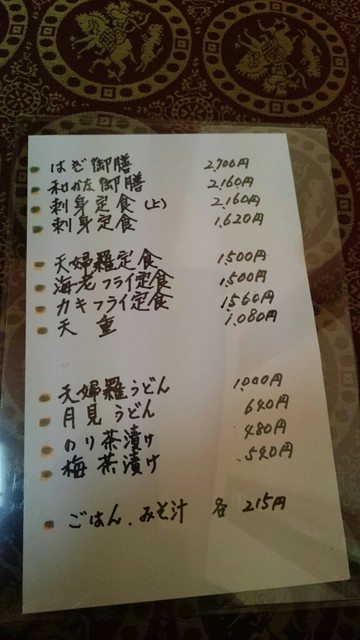 はぎ御膳 2,700円
和かな御膳 2,160円
刺身定食(上) 2,160円
刺身定食 1,620円
天婦羅定食 1,500円
海老フライ定食 1,500円
カキフライ定食 1,560円
天重 1,080円
天婦羅うどん 1,000円
月見うどん 640円
のり茶漬け 480円
梅茶漬け 540円
ごはん、みそ汁 各 215円